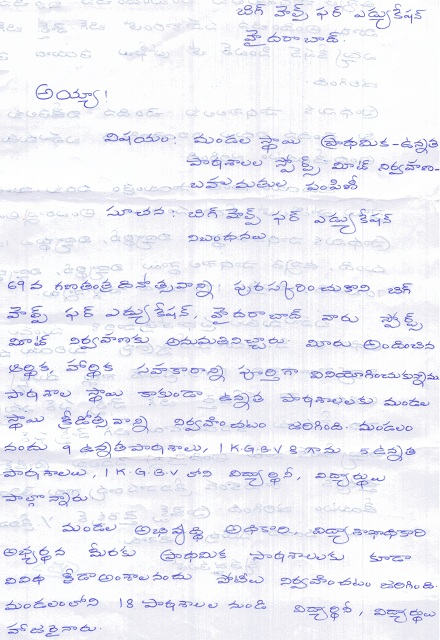 బిగ్ హెల్ప్ ఫర్ ఎడ్యుకేషన్
హైదరాబాద్
అయ్యా!
విషయం: మండల స్థాయి ప్రాథమిక-ఉన్నత
పాఠశాలల స్పోర్ట్స్ మీట్ నిర్వహణ-
బహుమతుల పంపిణీ
సూచన: బిగ్ హెల్ప్ ఫర్ ఎడ్యుకేషన్
నిబంధనలు
69వ గణతంత్ర దినోత్సవాన్ని పురస్కరించుకొని బిగ్
హెల్ప్ ఫర్ ఎడ్యుకేషన్, హైదరాబాద్ వారు స్పోర్ట్స్
మీట్ నిర్వహణకు అనుమతినిచ్చారు. మీరు అందించిన
ఆర్థిక, హార్థిక సహకారాన్ని పూర్తిగా వినియోగించుకున్నాము
పాఠశాల స్థాయి కాకుండా ఉన్నత పాఠశాలలకు మండల
స్థాయి క్రీడోత్సవాన్ని నిర్వహించటం జరిగింది. మండలం
నందు 9 ఉన్నతపాఠశాలలు, 1 K.G.B.V కి గాను 5 ఉన్నత
పాఠశాలలు, 1 K.G.B.V లోని విద్యార్థినీ, విద్యార్థులు
పాల్గొన్నారు
మండల అభివృద్ధి అధికారి, విద్యాశాఖాధికారి
అభ్యర్థన మేరకు ప్రాథమిక పాఠశాలలకు కూడా
వివిధ క్రీడా అంశాలనందు పోటీలు నిర్వహించటం జరిగింది.
మండలంలోని 18 పాఠశాలల నుండి విద్యార్థినీ, విద్యార్థులు
హాజరైనారు.